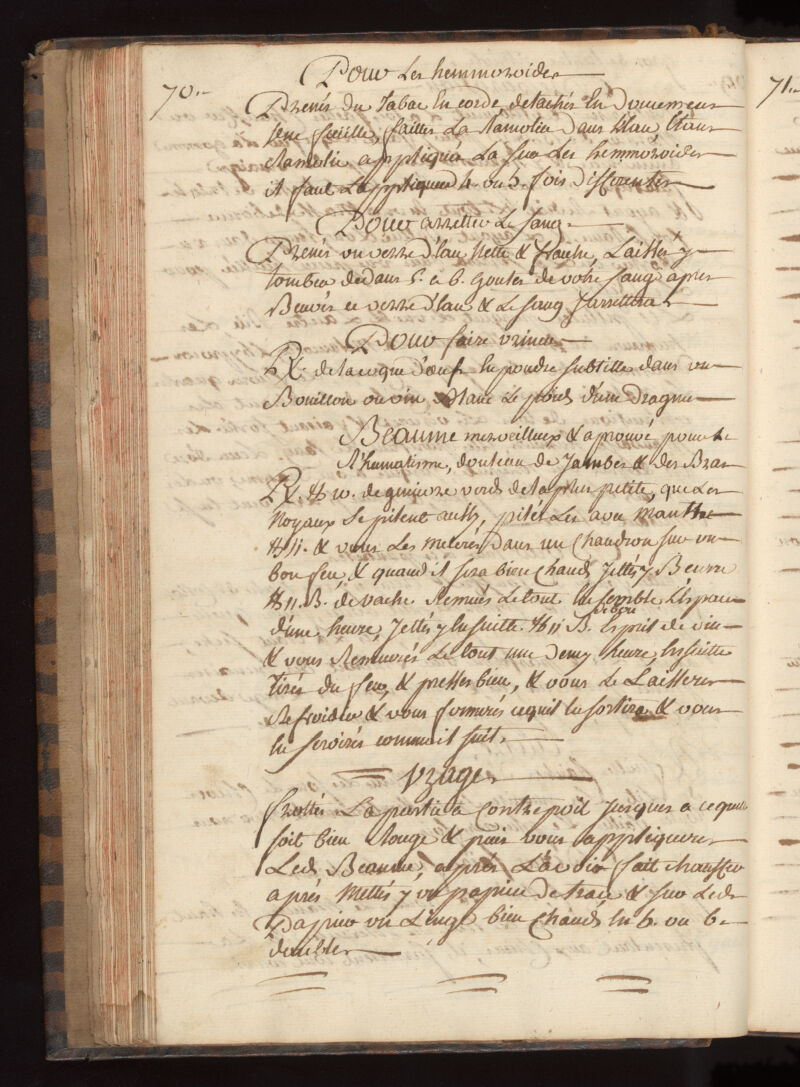 70.-
Pour Les hemmoroides
Prenés du Tabac En corde, detachés En Doucement
sene fueille, faittes La Ramolir dans l'eau, Etant
Ramolie appliqués La sur Les hemmoroides
il faut L'appliquer 4. ou 5. fois differentes
Pour arretter Le sang.
Prenés un verre d'Eau Nette & fraiche, Laissés y
tomber dedans 5. a 6. Goutes de votre sang apres
Beuvés ce verre d'Eau & Le sang S'arrettera
Pour faire vriner
Rx. de la coque d'œuf En poudre subtille dans un
Bouillon ou vin Blanc Le poids d'une Dragme
Beaume merveilleux & aprouvé pour Le
Rhumatisme, douleur de Jambes & des Bras
Rx. ℔ 10. de genievre verds de la plus petite, que Les
Noyaux Se pilent aussy, pilés Les avec
℔ ii. & vous Les meterés Dans un Chaudron sur un
bon feu, & quand il sera bien Chaud Jettés y Beurre
℔ ii. B. de vache. Remués Le tout Ensemble L'Espace
d'une heure, Jettés y Ensuitte ℔ ii B. de bon Esprit de vin
& vous Remuerés Le tout une Demy heure, Ensuitte
Tirés du feu, & pressés bien, & vous Le Laisserés
Refroidir & vous fermerés ce quil En sortira & vous
En servirés comme il suit.
Vzage
frottés La partie a Contre poil Jusques a ce quelle
soit bien Rouge & puis vous appliquerés
Led. Beaume, après L'avoir fait chauffer
après Mettés y un papier de trace & sur Led.
Papier un Linge bien Chaud En 5. ou 6.
doubles
71.-